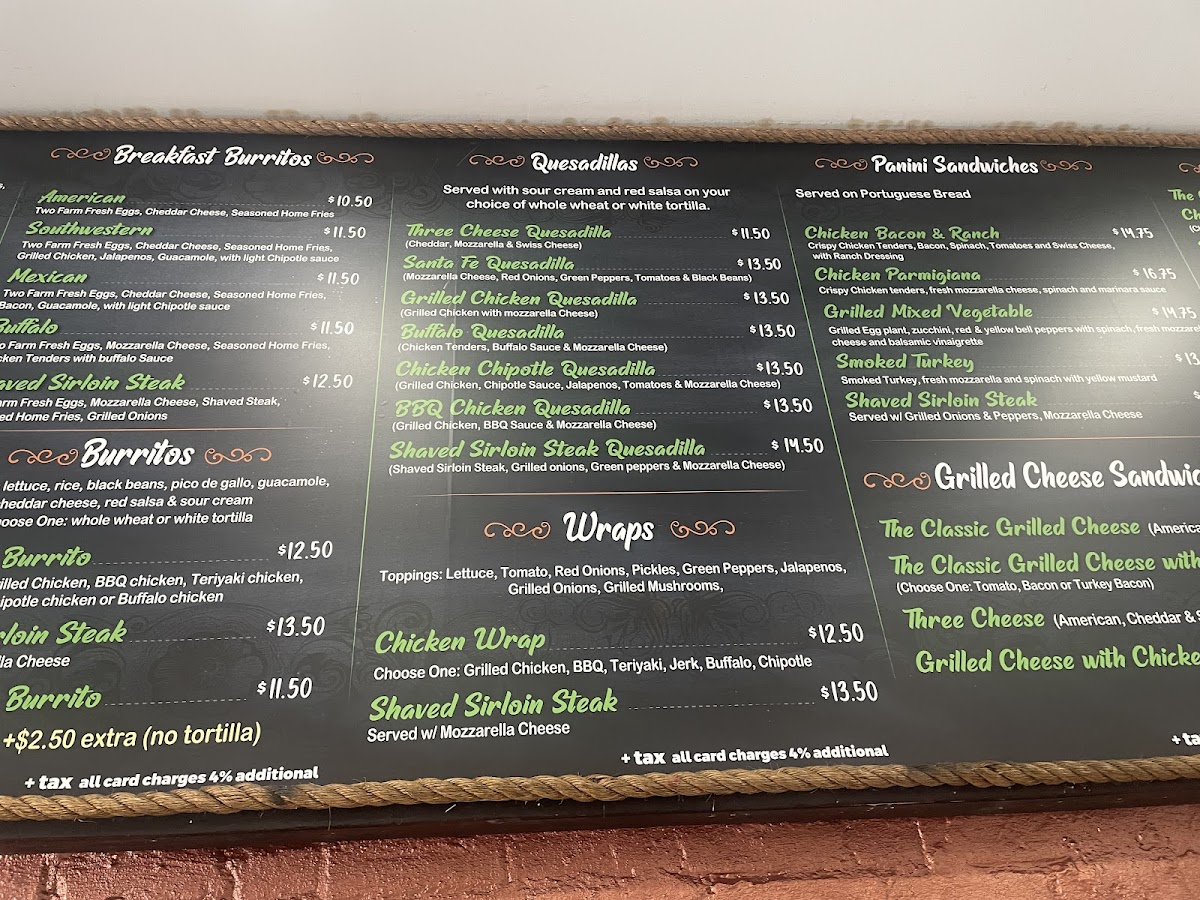 Breakfast Burritos
American $10.50
Two Farm Fresh Eggs, Cheddar Cheese, Seasoned Home Fries
Southwestern $11.50
Two Farm Fresh Eggs, Cheddar Cheese, Seasoned Home Fries,
Grilled Chicken, Jalapenos, Guacamole, with light Chipotle sauce
Mexican $11.50
Two Farm Fresh Eggs, Cheddar Cheese, Seasoned Home Fries,
Bacon, Guacamole, with light Chipotle sauce
Buffalo $11.50
Farm Fresh Eggs, Mozzarella Cheese, Seasoned Home Fries,
Tenders with buffalo Sauce
Sirloin Steak $12.50
Fresh Eggs, Mozzarella Cheese, Shaved Steak,
Home Fries, Grilled Onions
Burritos
lettuce, rice, black beans, pico de gallo, guacamole,
cheddar cheese, red salsa & sour cream
One: whole wheat or white tortilla
Burrito $12.50
Chicken, BBQ chicken, Teriyaki chicken,
chicken or Buffalo chicken
Steak $13.50
Cheese
Burrito $11.50
+$2.50 extra (no tortilla)
+ tax all card charges 4% additional
Quesadillas
Served with sour cream and red salsa on your
choice of whole wheat or white tortilla.
Three Cheese Quesadilla $11.50
(Cheddar, Mozzarella & Swiss Cheese)
Santa Fe Quesadilla $13.50
(Mozzarella Cheese, Red Onions, Green Peppers, Tomatoes & Black Beans)
Grilled Chicken Quesadilla $13.50
(Grilled Chicken with mozzarella Cheese)
Buffalo Quesadilla $13.50
(Chicken Tenders, Buffalo Sauce & Mozzarella Cheese)
Chicken Chipotle Quesadilla $13.50
(Grilled Chicken, Chipotle Sauce, Jalapenos, Tomatoes & Mozzarella Cheese)
BBQ Chicken Quesadilla $13.50
(Grilled Chicken, BBQ Sauce & Mozzarella Cheese)
Shaved Sirloin Steak Quesadilla $14.50
(Shaved Sirloin Steak, Grilled onions, Green peppers & Mozzarella Cheese)
Wraps
Toppings: Lettuce, Tomato, Red Onions, Pickles, Green Peppers, Jalapenos,
Grilled Onions, Grilled Mushrooms,
Chicken Wrap $12.50
Choose One: Grilled Chicken, BBQ, Teriyaki, Jerk, Buffalo, Chipotle
Shaved Sirloin Steak $13.50
Served w/ Mozzarella Cheese
+ tax all card charges 4% additional
Panini Sandwiches
Served on Portuguese Bread
Chicken Bacon & Ranch $14.75
Crispy Chicken Tenders, Bacon, Spinach, Tomatoes and Swiss Cheese,
with Ranch Dressing
Chicken Parmigiana $16.75
Crispy Chicken tenders, fresh mozzarella cheese, spinach and marinara sauce
Grilled Mixed Vegetable $14.75
Grilled Egg plant, zucchini, red & yellow bell peppers with spinach, fresh
cheese and balsamic vinaigrette
Smoked Turkey
Smoked Turkey, fresh mozzarella and spinach with yellow mustard
Shaved Sirloin Steak
Served w/ Grilled Onions & Peppers, Mozzarella Cheese
Grilled Cheese
The Classic Grilled Cheese
The Classic Grilled Cheese with
(Choose One: Tomato, Bacon or Turkey Bacon)
Three Cheese (American, Cheddar &
Grilled Cheese with